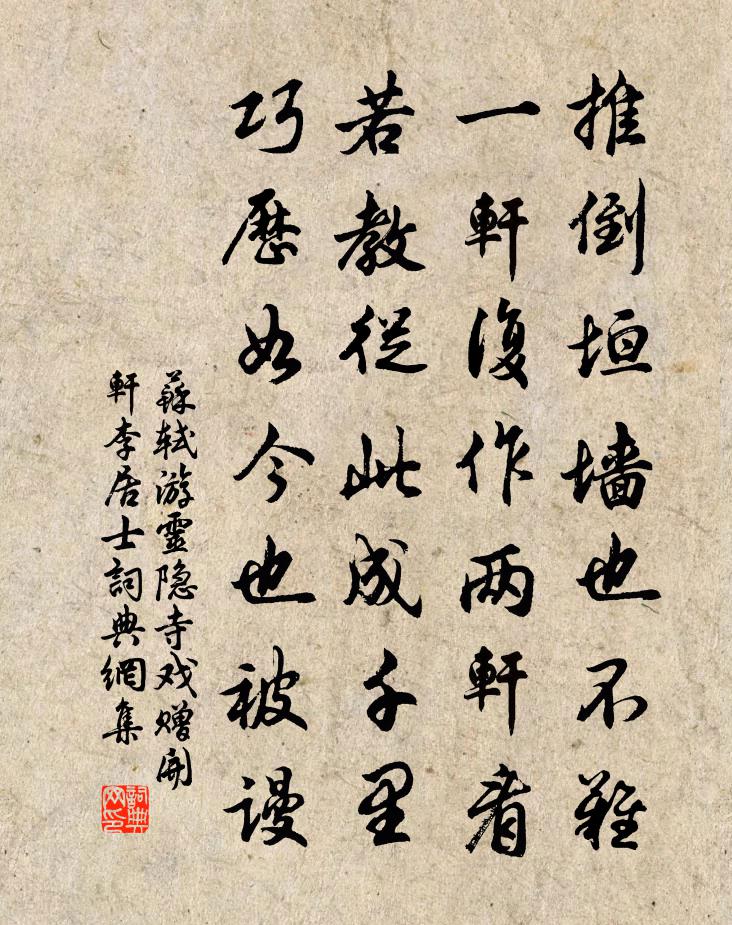 推倒垣墻也不難
一軒復作两軒看
若教從此成千里
巧歷如今也被謾
蘇軾游靈隐寺戏赠開
軒李居士詞典網集
詞典网印